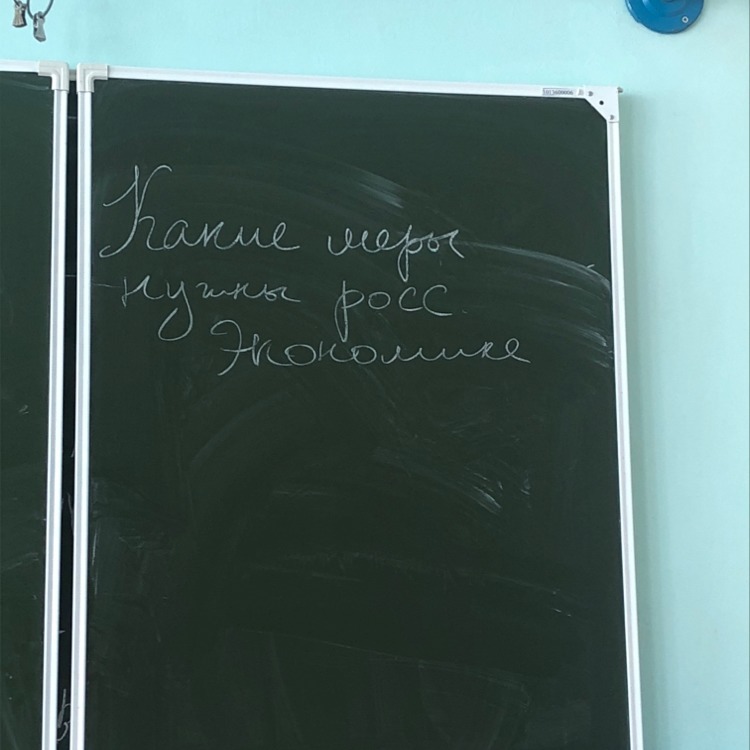 Какие меры
нужны росс.
Экономике